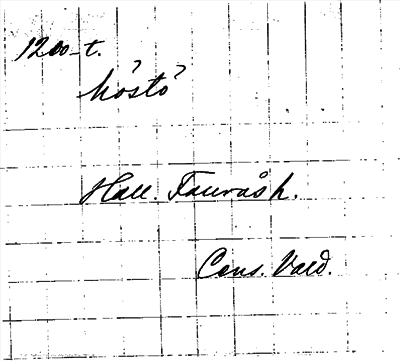 1200-t.
hóstó
Hall. Fauråsh.
Cons. Vald.